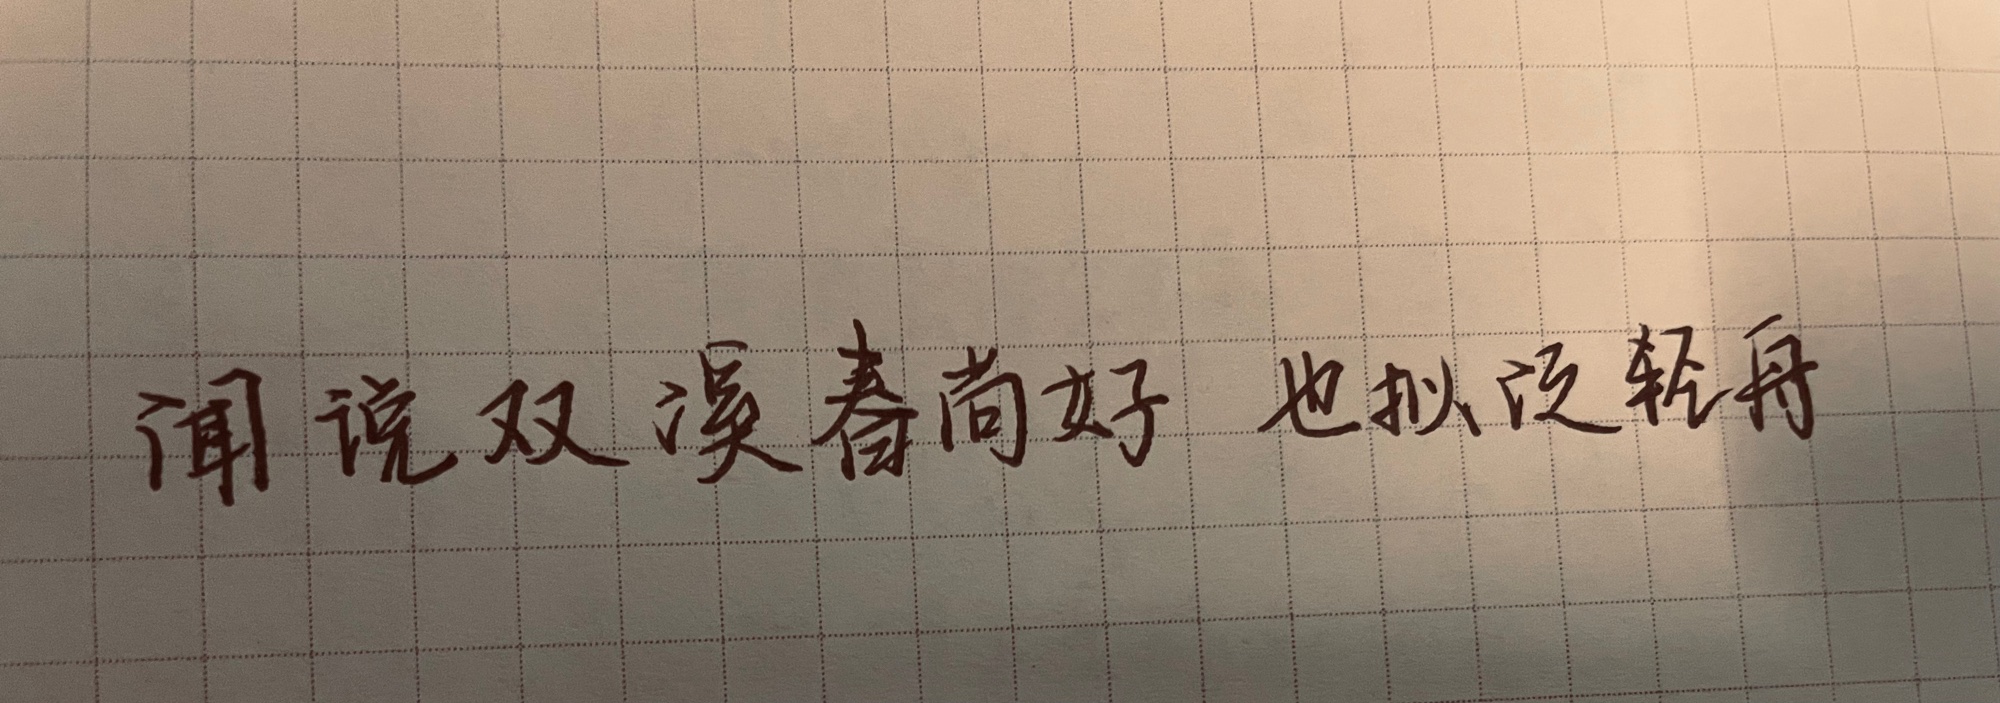 闻说双溪春尚好 也拟泛轻舟